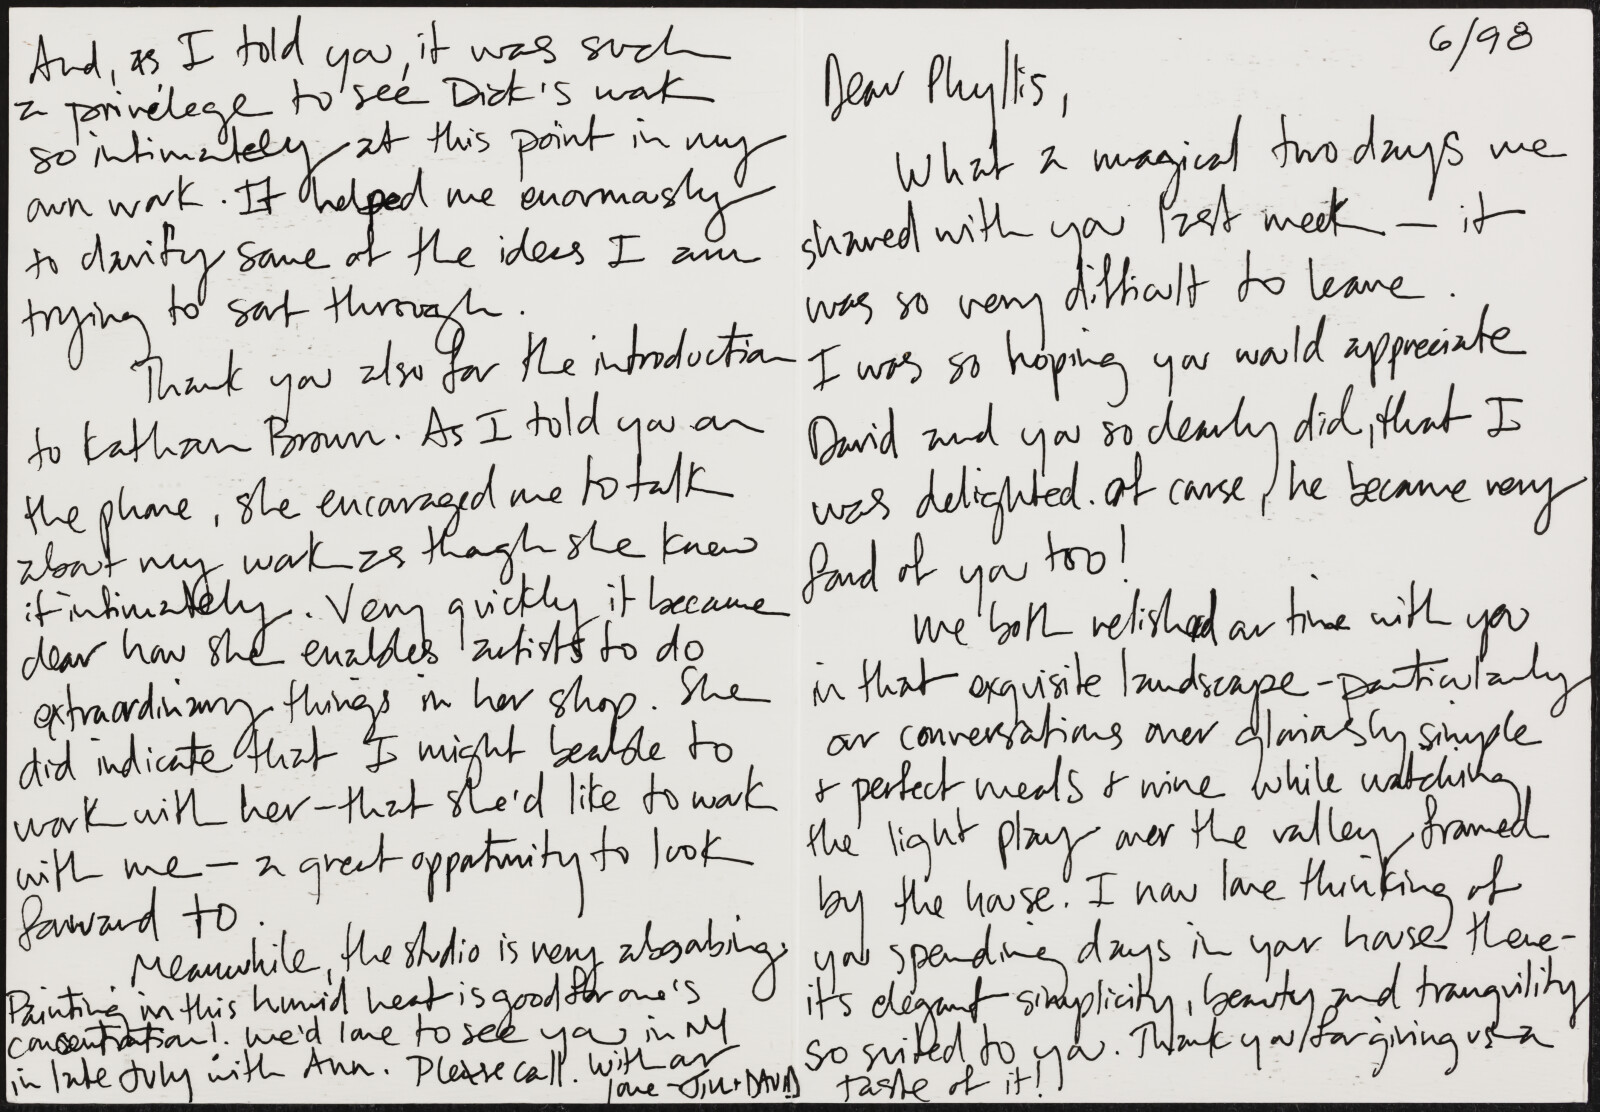 6/98
Dear Phyllis,
What a magical two days we
shared with you last week — it
was so very difficult to leave.
I was so hoping you would appreciate
David and you so clearly did, that I
was delighted. Of course, he became very
fond of you too!
We both relished our time with you
in that exquisite landscape - particularly
our conversations over gloriously simple
+ perfect meals + wine while watching
the light play over the valley, framed
by the house. I now love thinking of
you spending days in your house there -
it's elegant simplicity, beauty and tranquility
so suited to you. Thank you for giving us a
taste of it!
And, as I told you, it was such
a privelege to see Dick's work
so intimately at this point in my
own work. It helped me enormously
to clarify some of the ideas I am
trying to sort through.
Thank you also for the introduction
to Kathan Brown. As I told you on
the phone, she encouraged me to talk
about my work as though she knew
it intimately. Very quickly it became
clear how she enables artists to do
extraordinary things in her shop. She
did indicate that I might be able to
work with her - that she'd like to work
with me — a great opportunity to look
forward to.
Meanwhile, the studio is very absorbing.
Painting in this humid heat is good for one's
concentration! We'd love to see you in NY
in late July with Ann. Please call. With our
love - Jill + DAVID